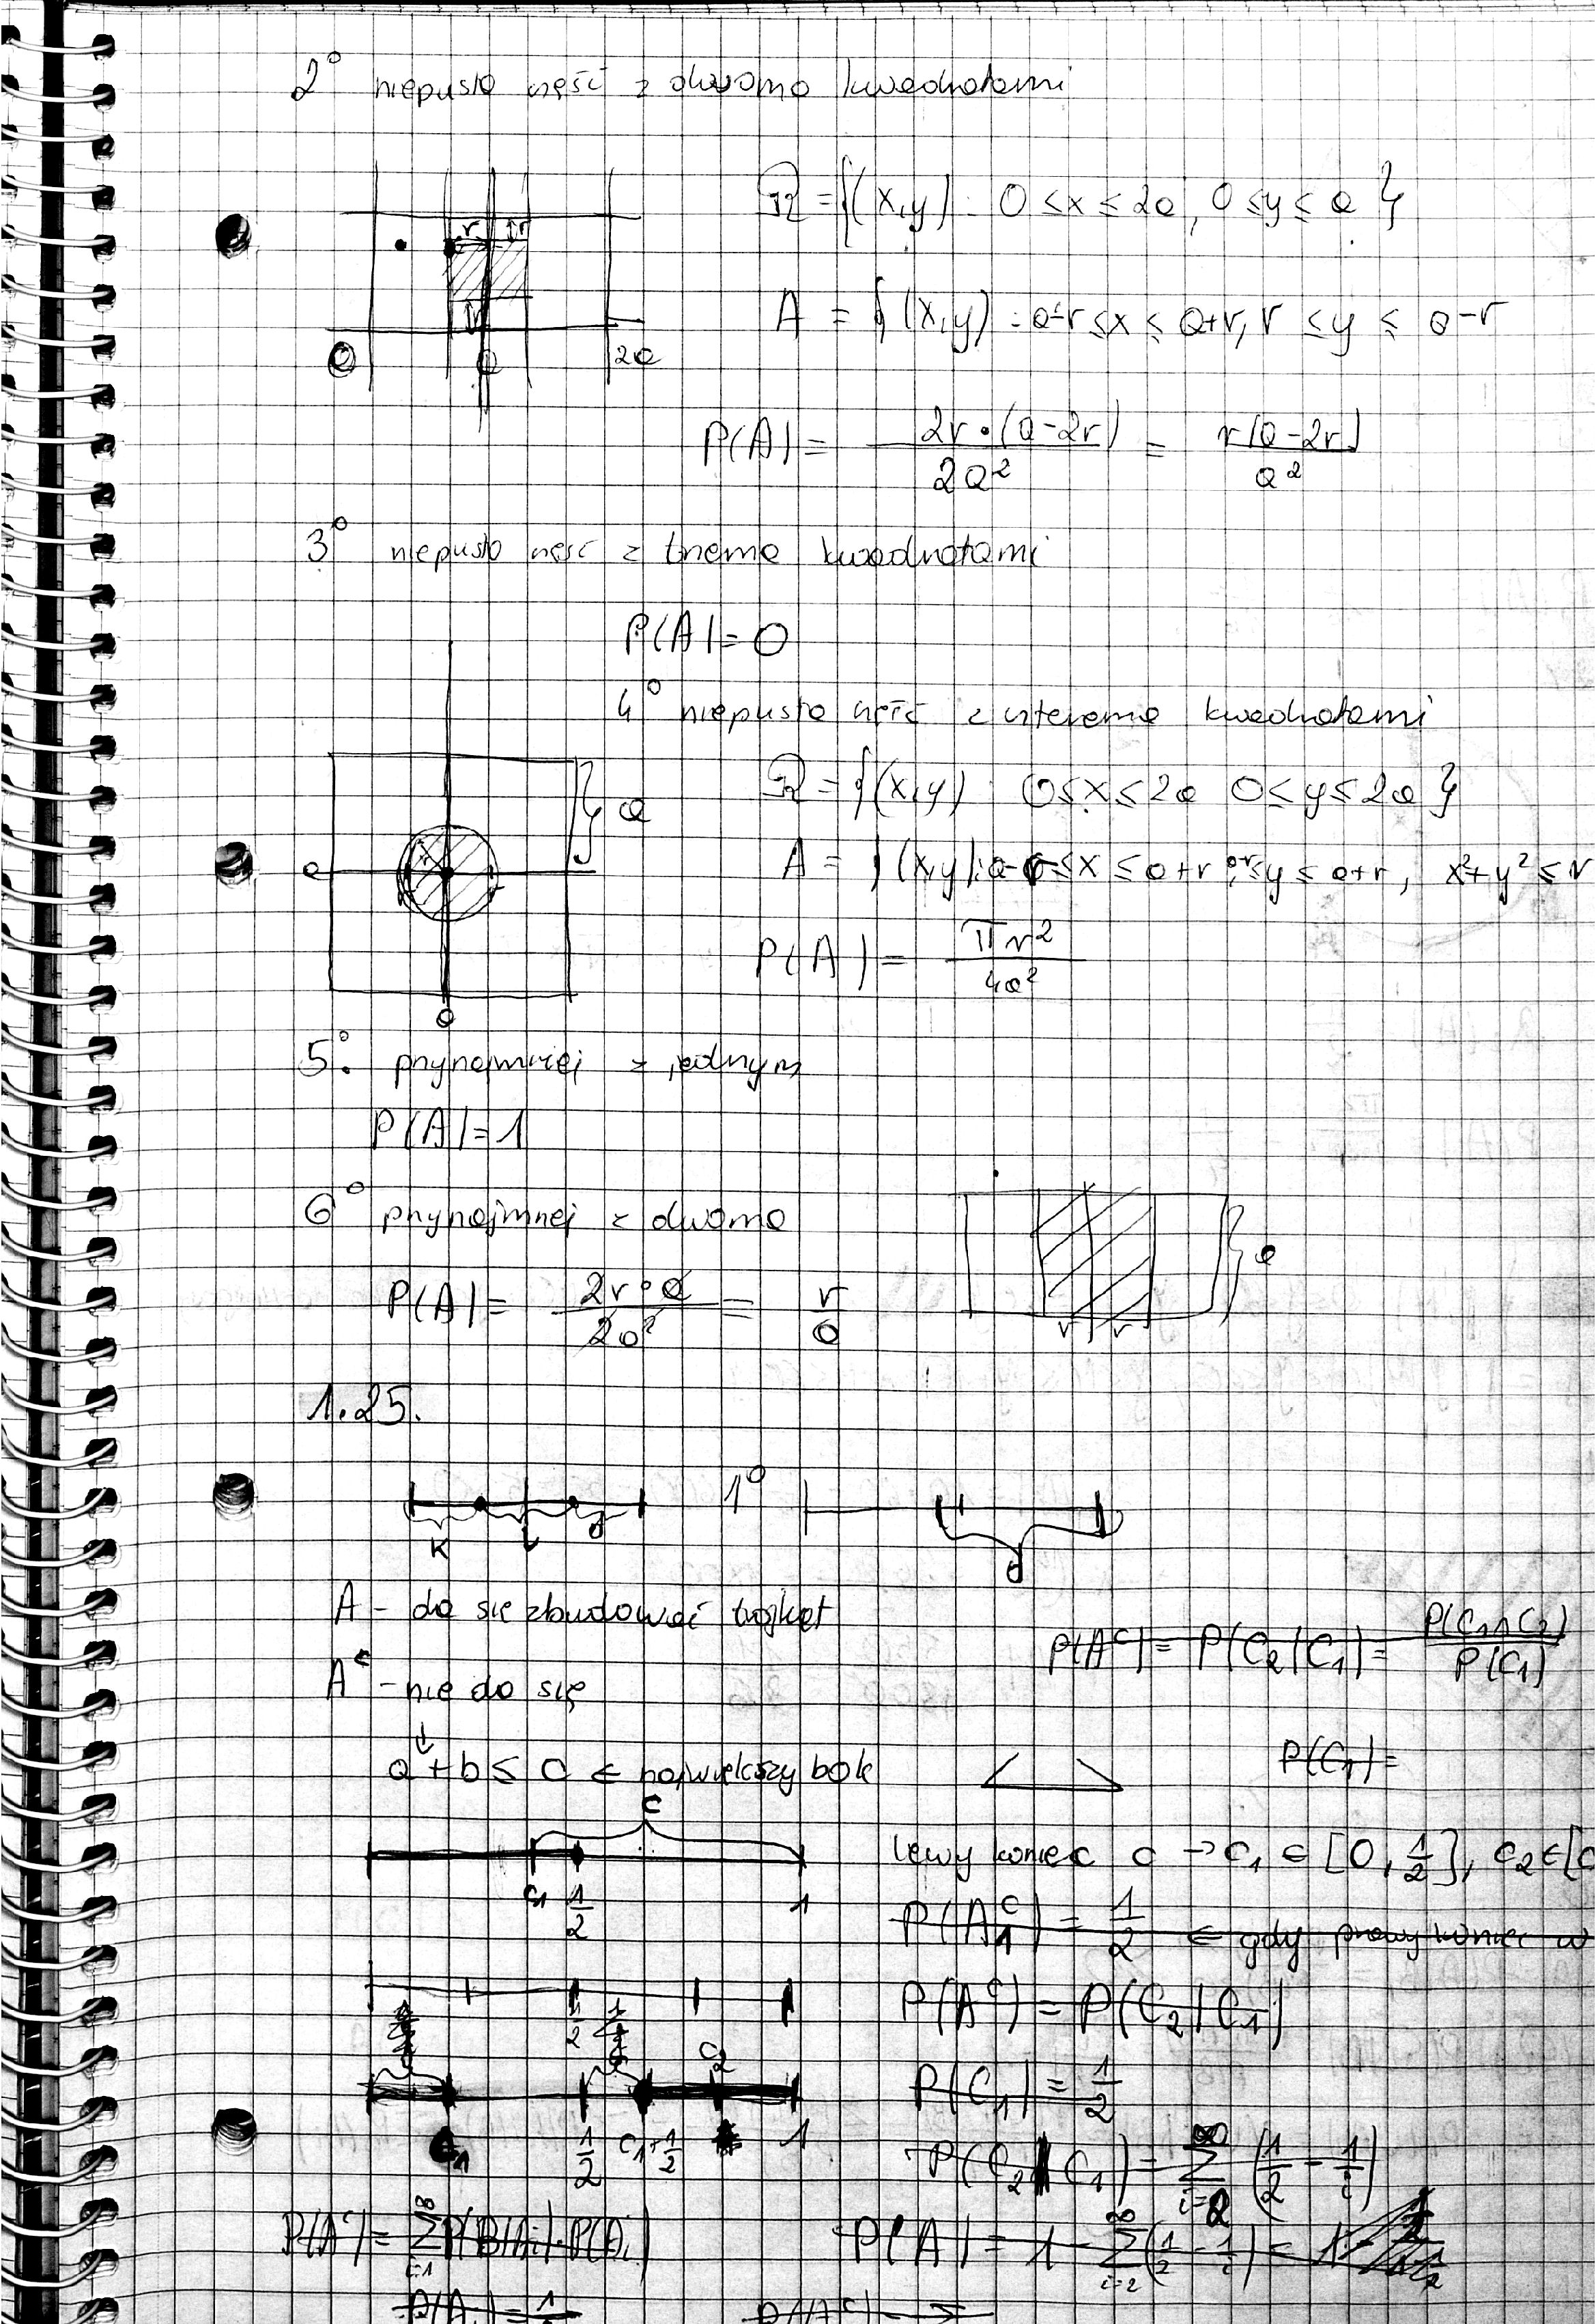 2° niepusta część z dwoma kwadratami
Ω = {(x,y) : 0 ≤ x ≤ 2a, 0 ≤ y ≤ a}
r r
A = {(x,y) : a-r ≤ x ≤ a+r, r ≤ y ≤ a-r
r
0 a 2a
P(A) = 2r·(a-2r) / 2a² = r(a-2r) / a²
3° niepusta część z trzema kwadratami
P(A) = 0
4° niepusta część z czterema kwadratami
Ω = {(x,y) : 0 ≤ x ≤ 2a 0 ≤ y ≤ 2a}
a
A = {(x,y) : a-r ≤ x ≤ a+r, a-r ≤ y ≤ a+r, x²+y² ≤ r
a r
P(A) = πr² / 4a²
a
5° przynajmniej z jednym
P(A) = 1
6° przynajmniej z dwoma
a
P(A) = 2r·a / 2a² = r / a
r r
1.25.
1°
K L
A - da się zbudować trójkąt
P(Aᶜ) = P(C₂|C₁) = P(C₁∩C₂) / P(C₁)
Aᶜ - nie da się
a + b ≤ c ← największy bok
P(C₁) =
c
lewy koniec c → c₁ ∈ [0, 1/2], c₂ ∈ [c
c₁ 1/2 1
P(A₁ᶜ) = 1/2 ← gdy prawy koniec w
1/2
P(Aᶜ) = P(C₂|C₁)
c₂
P(C₁) = 1/2
c₁ 1/2 c₁+1/2 1
P(C₂|C₁) = ∑_{i=2}^{∞} (1/2 - 1/i)
P(A) = ∑_{i=1}^{∞} P(B|Ai)·P(Ai)
P(A) = 1 - ∑_{i=2}^{∞} (1/2 - 1/i) = 1 -